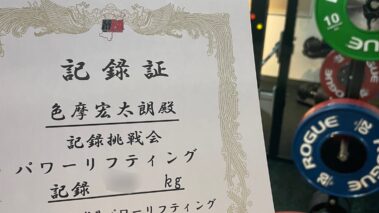 記録証
色摩宏太朗殿
記録挑戦会
パワーリフティング
記録 kg
パワーリフティング
10
ROGUE
ROGUE
20